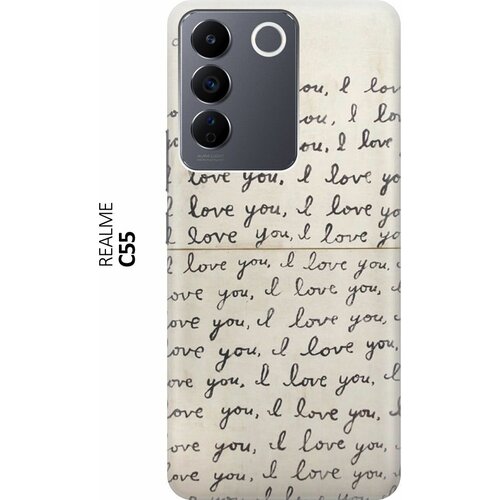 REALME
C55
ou, I lov
ou, I lo
I love
love you, I love yo
love you, I love yo
I love you, I love yo
I love you, I love you,
ove you, I love you,
ove you, I love you,
ove you, I love you,
ove you, I love you, I
ove you, I love you,
ove you, I love you,
ove you, I love you,